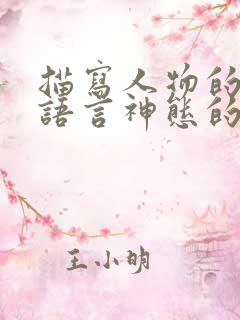 描寫人物的
語言神態的
王小明